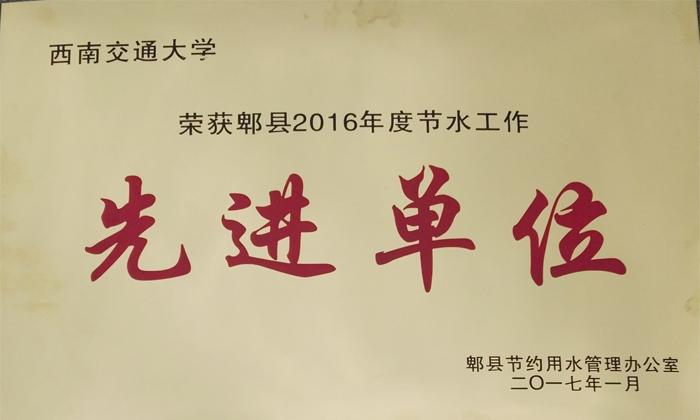 西南交通大学
荣获郫县2016年度节水工作
先进单位
郫县节约用水管理办公室
二〇一七年一月